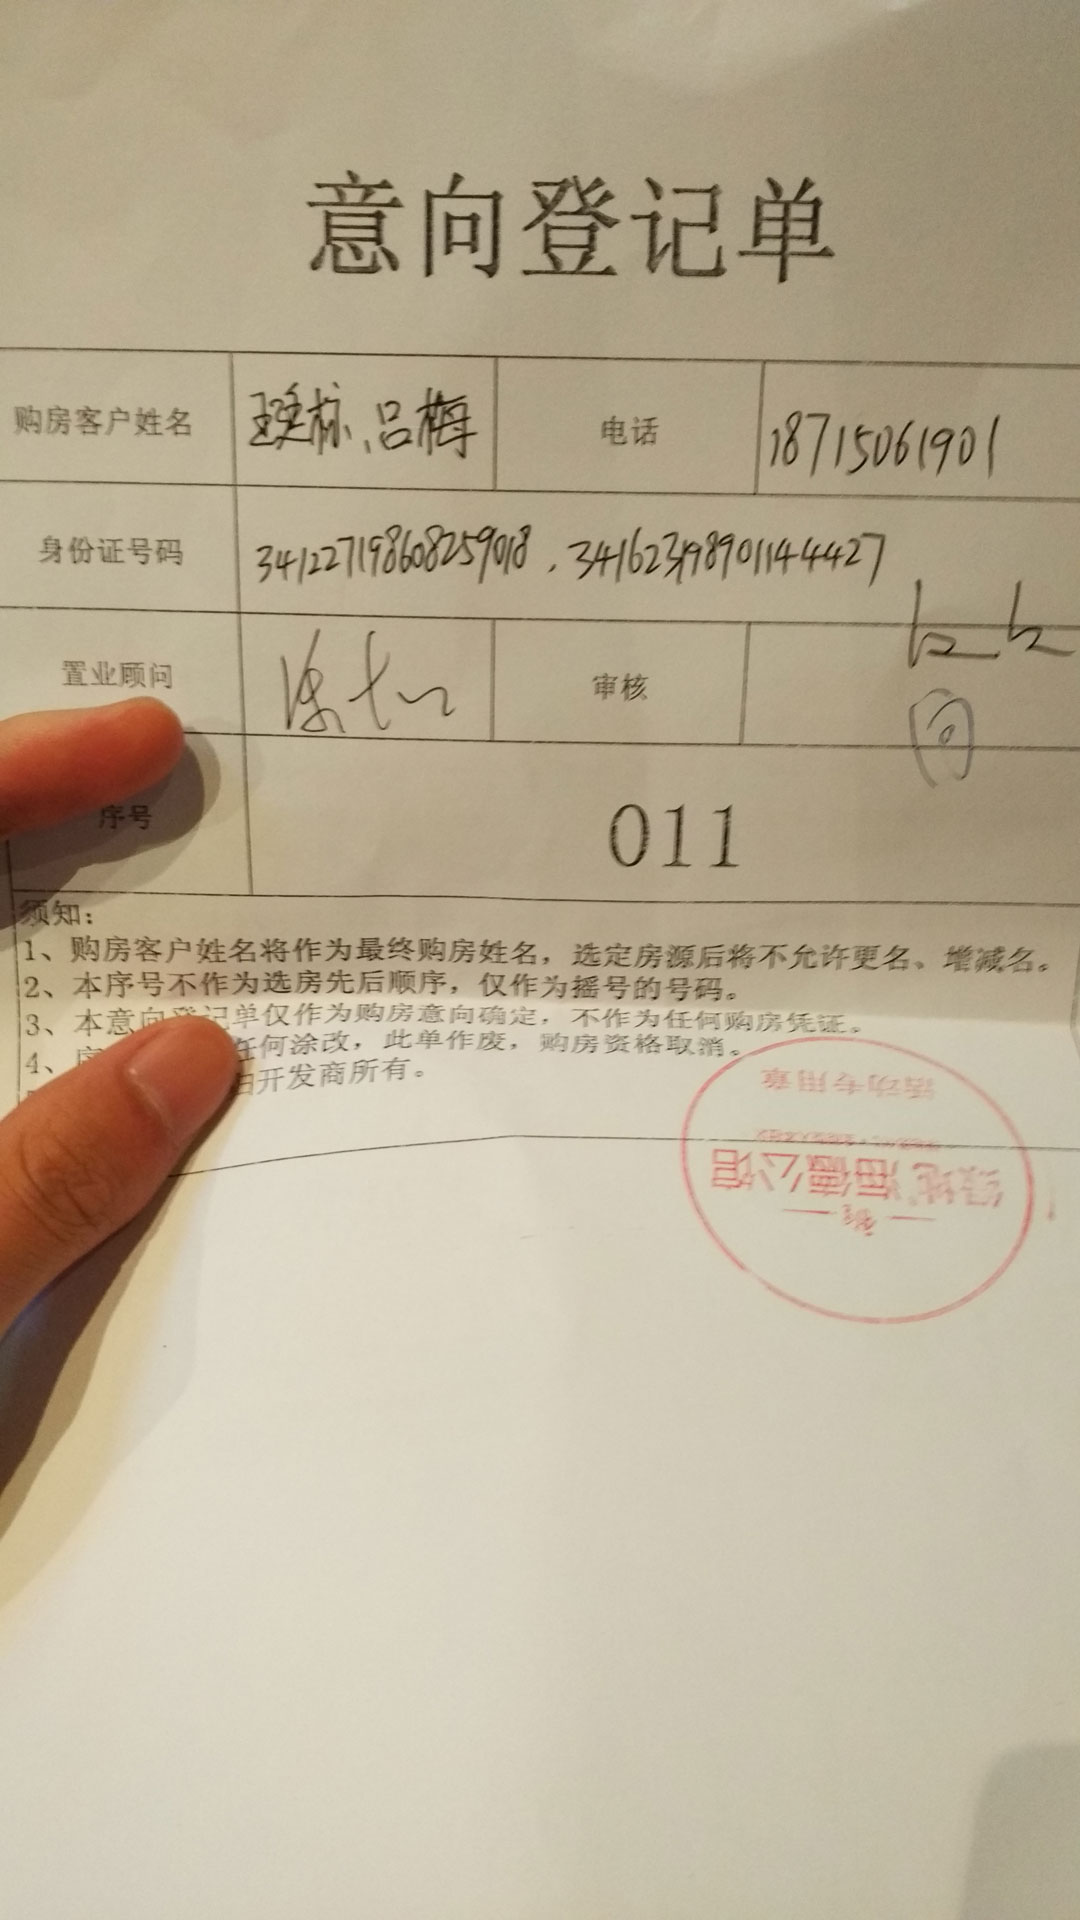 意向登记单
购房客户姓名 、吕梅 电话 18715061901
身份证号码 341227198608259018、341623198901144427
置业顾问 审核
序号 011
须知：
1、购房客户姓名将作为最终购房姓名，选定房源后将不允许更名、增减名。
2、本序号不作为选房先后顺序，仅作为摇号的号码。
3、本意向登记单仅作为购房意向确定，不作为任何购房凭证。
4、 任何涂改，此单作废，购房资格取消。
由开发商所有。
活动专用章
绿地海德公馆